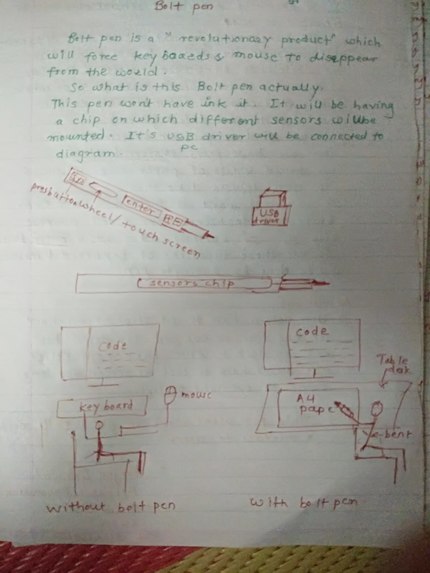 Bolt pen
Bolt pen is a "revolutionary product" which
will force keyboards & mouse to disappear
from the world.
So what is this Bolt pen actually.
This pen wont have ink it. It will be having
a chip on which different sensors will be
mounted. It's USB driver will be connected to
pc
diagram.
enter
pushbutton wheel/touch screen
USB
driver
sensors chip
code
code
Table
desk
keyboard
mouse
A4
pape
e-bent
without bolt pen
with bolt pen